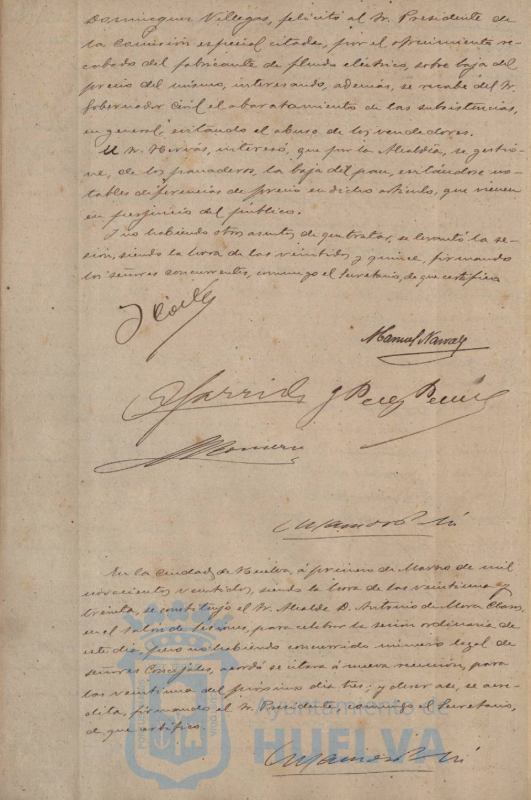 Dominguez Villegas, felicitó al Sr. Presidente de
la Comisión especial citada, por el ofrecimiento re-
cabado del fabricante de fluido eléctrico, sobre baja del
precio del mismo, interesando, además, se recabe del Sr.
Gobernador Civil el abaratamiento de las subsistencias,
en general, evitando el abuso de los vendedores.
El Sr. Hervás, interesó, que por la Alcaldía, se gestio-
ne, de los panaderos, la baja del pan, evitándose no-
tables diferencias de precio en dicho artículo, que vienen
en perjuicio del público.
Y no habiendo otros asuntos de que tratar, se levantó la se-
sión, siendo la hora de las veintidos y quince, firmando
los señores concurrentes, conmigo el Secretario, de que certifico
Manuel Narvaez
Garrido
J Perez
Romero
En la Ciudad de Huelva, á primero de Marzo de mil
novecientos veintidos, siendo la hora de las veintiuna y
treinta, se constituyó el Sr. Alcalde D. Antonio de Mora Claros,
en el salón de sesiones, para celebrar la sesión ordinaria de
este día, pero no habiendo concurrido número legal de
señores Concejales, acordó se citara á nueva reunión, para
las veintiuna del próximo día tres; y diser así, se acre-
dita, firmando el Sr. Presidente, conmigo el Secretario,
de que certifico.
Ayuntamiento de
HUELVA